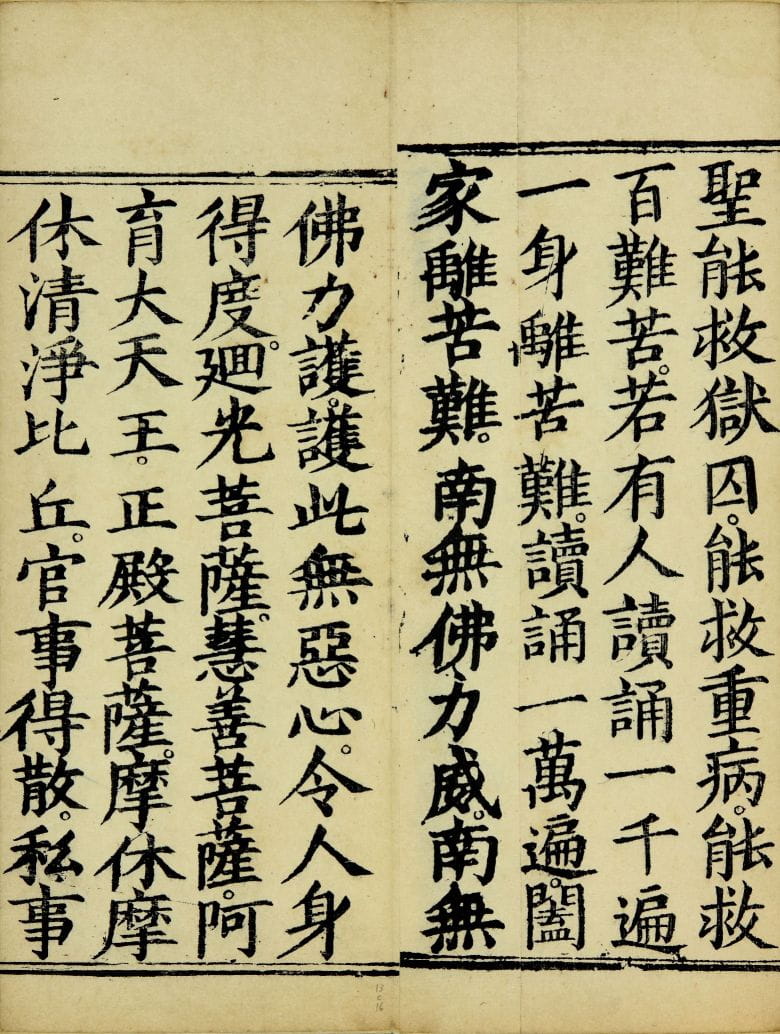 聖能救獄囚。能救重病。能救
百難苦。若有人讀誦一千遍
一身離苦難。讀誦一萬遍。闔
家離苦難。南無佛力威。南無
佛力護。護此無惡心。令人身
得度。廻光菩薩。慧善菩薩。阿
育大天王。正殿菩薩。摩休摩
休清淨比丘。官事得散。私事